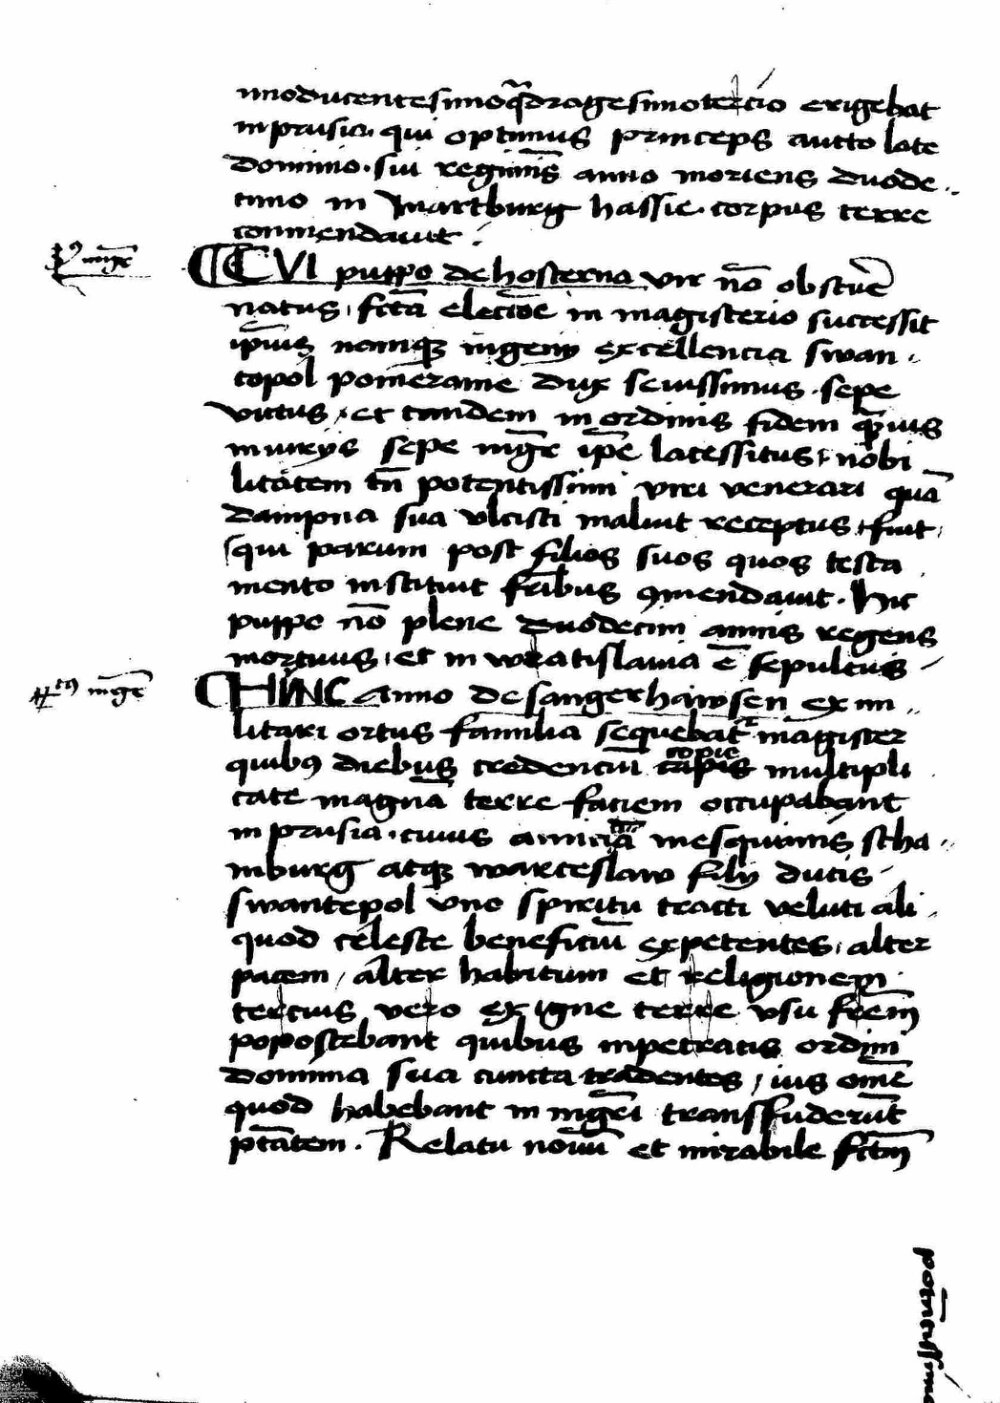 nnoducentesimoq̃dragesimotercio erigebat
in prusia. qui optimus princeps aucto late
dominio. sui regiminis̄ anno moriens duode..
cimo in Martburg hassie. corpus terre
commendauit.
CUI puppo de hosterna vir nō obscurẽ
natus, fc̄ta elecc̄õe in magisterio successit
ip̄ius namq3 ingenij excellencia swan-
topol pomeranie dux seuissimus. sepe
victus, et tandem in ordinis fidem p̱̃rius
iniurijs sepe mḡr̄ ip̄e lacessitus, nobi
litatem tn̄ potentissimi viri venerari quā
dampna sua vlcisci maluit receptus, fuit,
qui parum post filios suos quos testa
mento instituit fr̄ibus ꝯmendauit. Hic
puppo nō plene duodecim annis regens
mortuus, et in wratislauia ē sepultus
4tus mḡr̄
HINC anno de sangerhawsen ex mi..
litari ortus familia sequebat᷑ magister
quibus diebus credenciū copie multipli
cate magnā terre faciem occupabant
in prusia. cuius amicicia mesquinus scha..
mburg atq3 warceslaw filij ducis
swantepol vno spiritu tracti veluti ali..
quod celeste beneficiū expetentes, alter
pacem, alter habitum et religionem
tercius vero ex igne terre vsu fr̄em
poposcebant quibus inpetratis ordini
dominia sua cuncta tradentes, ius om̄e
quod habebant in mḡr̄i transfuderūt
pt̄atem. Relatu nouū et mirabile fc̄tm̄
potentissima